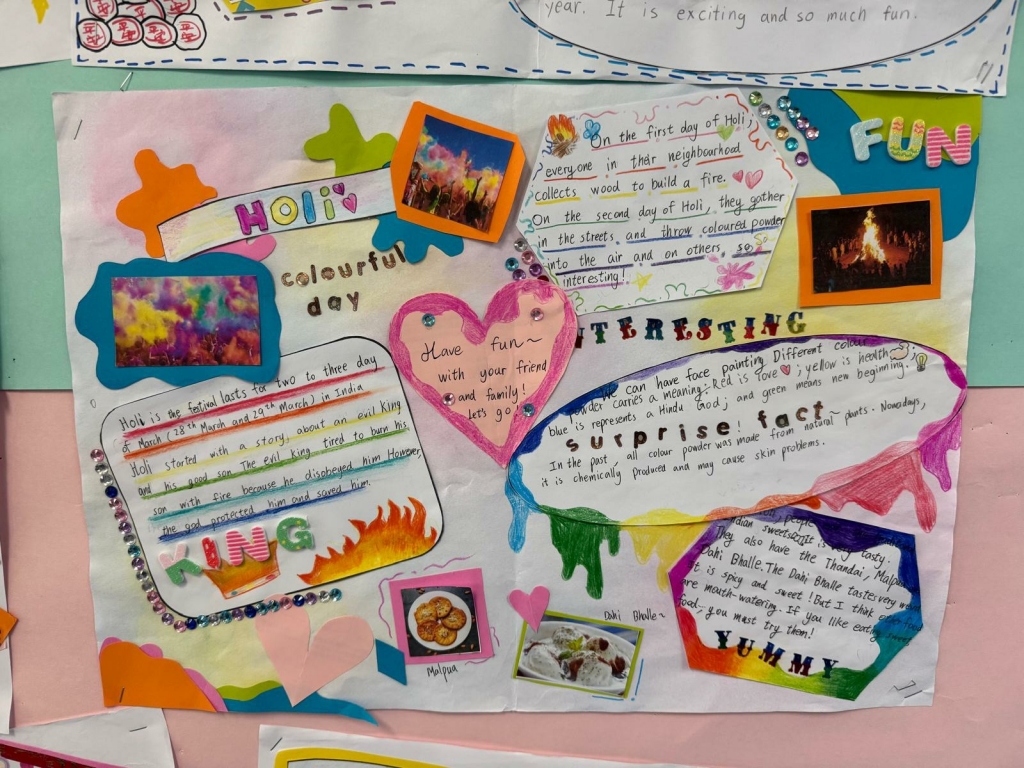 year. It is exciting and so much fun.
HOLi
colourful
day
On the first day of Holi,
everyone in their neighbourhood
collects wood to build a fire.
On the second day of Holi, they gather
in the streets and throw coloured powder
into the air and on others, so
interesting!
FUN
Have fun~
with your friend
and family!
let's go!
Holi is the festival lasts for two to three day
of March (28th March and 29th March) in India
Holi started with a story, about an evil King
and his good son The evil king tired to burn his
son with fire because he disobeyed him However,
the god protected him and saved him.
KING
NTERESTING
We can have face painting Different colour
powder carries a meaning: Red is love; yellow is health
blue is represents a Hindu God; and green means new beginning.
surprise! fact~
In the past, all colour powder was made from natural plants. Nowadays,
it is chemically produced and may cause skin problems.
people
sweets. It is very tasty.
They also have the Thandai, Malpua
Dahi Bhalle. The Dahi Bhalle tastes very
It is spicy and sweet! But I think
are mouth-watering. If you like eating
food~ you must try them!
YUMMY
Malpua
Dahi Bhalle~